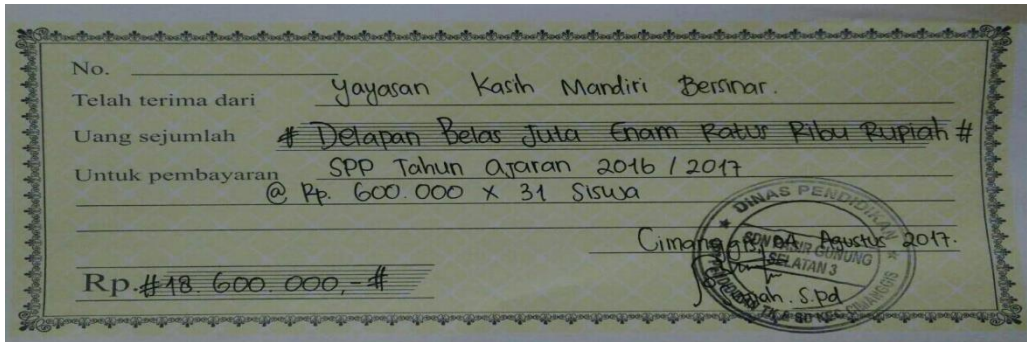 No.
Telah terima dari Yayasan Kasih Mandiri Bersinar.
Uang sejumlah # Delapan Belas Juta Enam Ratus Ribu Rupiah #
Untuk pembayaran SPP Tahun ajaran 2016 / 2017
@ Rp. 600.000 x 31 Siswa
DINAS PENDIDIKAN
Cimanggis, 04 Agustus 2017.
SDN PASIR GUNUNG
SELATAN 3
Rp. #18.600.000,-#
S.Pd
TK & SD KEC. CIMANGGIS